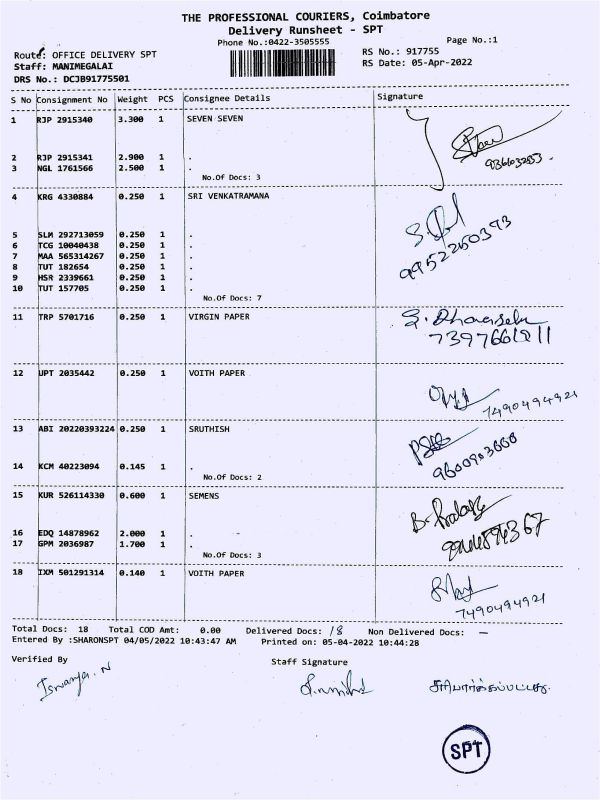 THE PROFESSIONAL COURIERS, Coimbatore
Delivery Runsheet - SPT
Phone No.:0422-3505555
Page No.:1
Route: OFFICE DELIVERY SPT
RS No.: 917755
Staff: MANIMEGALAI
RS Date: 05-Apr-2022
DRS No.: DCJB91775501
S No Consignment No Weight PCS Consignee Details Signature
1 RJP 2915340 3.300 1 SEVEN SEVEN
2 RJP 2915341 2.900 1 .
3 NGL 1761566 2.500 1 .
No.Of Docs: 3
4 KRG 4330884 0.250 1 SRI VENKATRAMANA
5 SLM 292713059 0.250 1 .
6 TCG 10040438 0.250 1 .
7 MAA 565314267 0.250 1 .
8 TUT 182654 0.250 1 .
9 HSR 2339661 0.250 1 .
10 TUT 157705 0.250 1 .
9952260393
No.Of Docs: 7
11 TRP 5701716 0.250 1 VIRGIN PAPER
12 UPT 2035442 0.250 1 VOITH PAPER
7490494921
13 ABI 20220393224 0.250 1 SRUTHISH
14 KCM 40223094 0.145 1 .
No.Of Docs: 2
15 KUR 526114330 0.600 1 SEMENS
16 EDQ 14878962 2.000 1 .
17 GPM 2036987 1.700 1 .
No.Of Docs: 3
18 IXM 501291314 0.140 1 VOITH PAPER
7490494921
Total Docs: 18 Total COD Amt: 0.00 Delivered Docs: 18 Non Delivered Docs: —
Entered By :SHARONSPT 04/05/2022 10:43:47 AM Printed on: 05-04-2022 10:44:28
Verified By Staff Signature
Iswarya. N
சரிபார்க்கப்பட்டது.
SPT